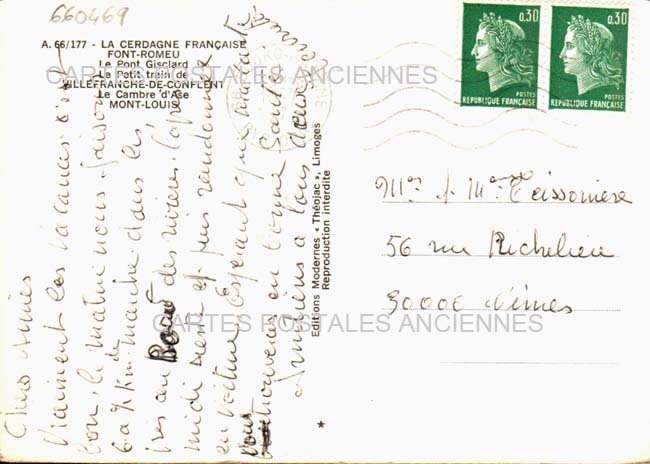 660469
A. 66/177 - LA CERDAGNE FRANÇAISE
FONT-ROMEU
Le Pont Gisclard
Le Petit train de
VILLEFRANCHE-DE-CONFLENT
Le Cambre d'Ase
MONT-LOUIS
CARTES POSTALES ANCIENNES
0.30
POSTES
REPUBLIQUE FRANÇAISE
0.30
POSTES
REPUBLIQUE FRANÇAISE
Chers Amies
Vraiment les vacances c'est
bon, le matin nous faisons
6 a 7 Km de marche dans les
au Bord des rivières, l'après
midi sieste et puis randonnée
en voiture. Esperant que
vous en bonne Santé
Amitiés a tous deux
Editions Modernes « Théojac », Limoges
Reproduction interdite
Mr & Mme Teissonière
56 rue Richelieu
30000 Nîmes
CARTES POSTALES ANCIENNES